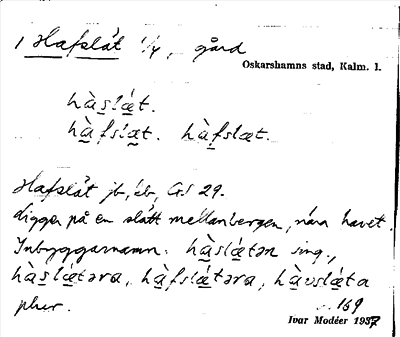 1 Hafslät 1/4, gård
Oskarshamns stad, Kalm. l.
hàslǽt.
hàfslæt. hàfslæt.
Hafslät jb, eb, GS 29.
ligger på en slätt mellan bergen, nära havet.
Inbyggarnamn: hàslǽtən sing.,
hàslǽtəra, hàfslǽtəra, hàvslǽta
plur. 169
Ivar Modéer 1937